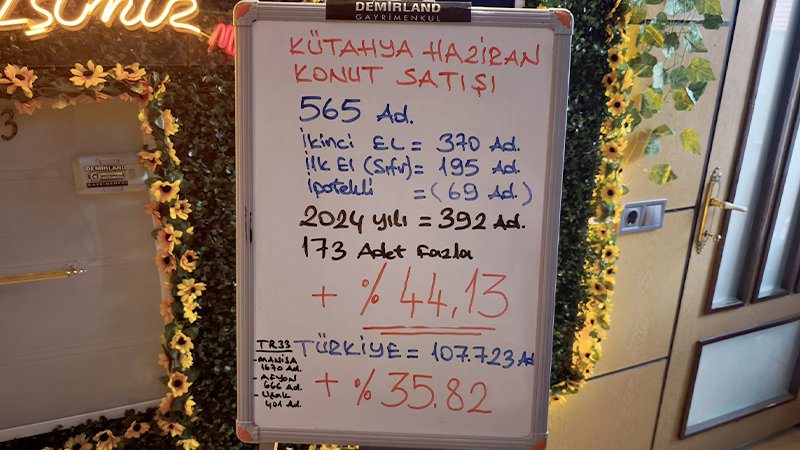 işiniz
DEMİRLAND
GAYRİMENKUL
KÜTAHYA HAZİRAN
KONUT SATIŞI
565 Ad.
İkinci EL = 370 Ad.
İlk El (Sıfır) = 195 Ad.
İpotekli = (69 Ad.)
2024 yılı = 392 Ad.
173 Adet fazla
+ % 44,13
TÜRKİYE = 107.723 Ad
+ % 35.82
TR33
- MANİSA
1670 Ad.
- AFYON
666 Ad.
- Uşak
401 Ad.
3
DEMİRLAND
GAYRİMENKUL